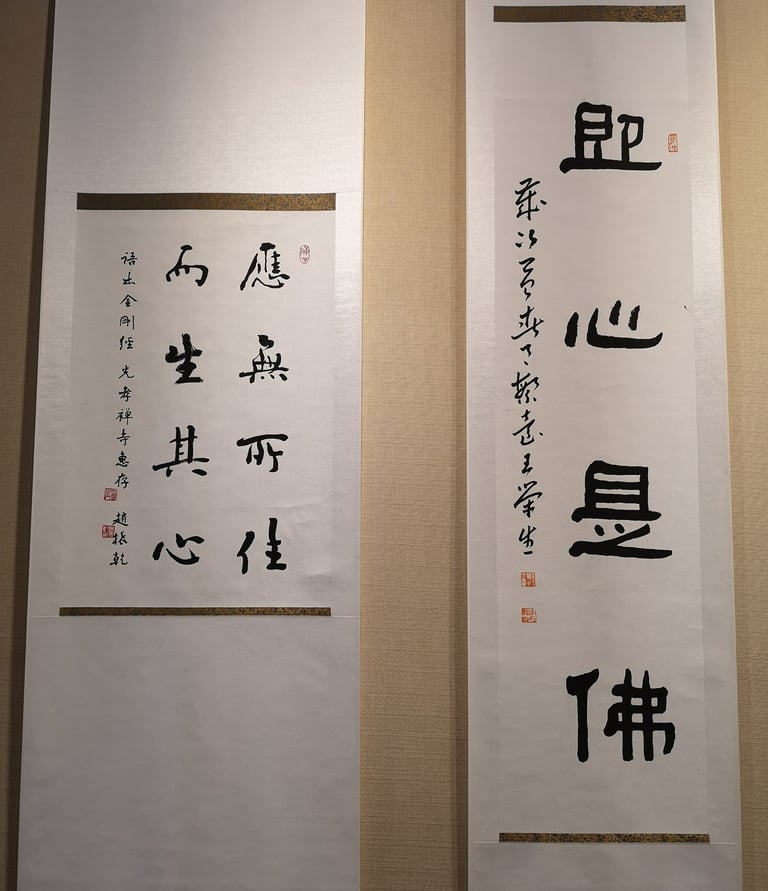 即心是佛
歲次春王榮生
應無所住
而生其心
語出金剛經 光孝禅寺惠存 趙振乾